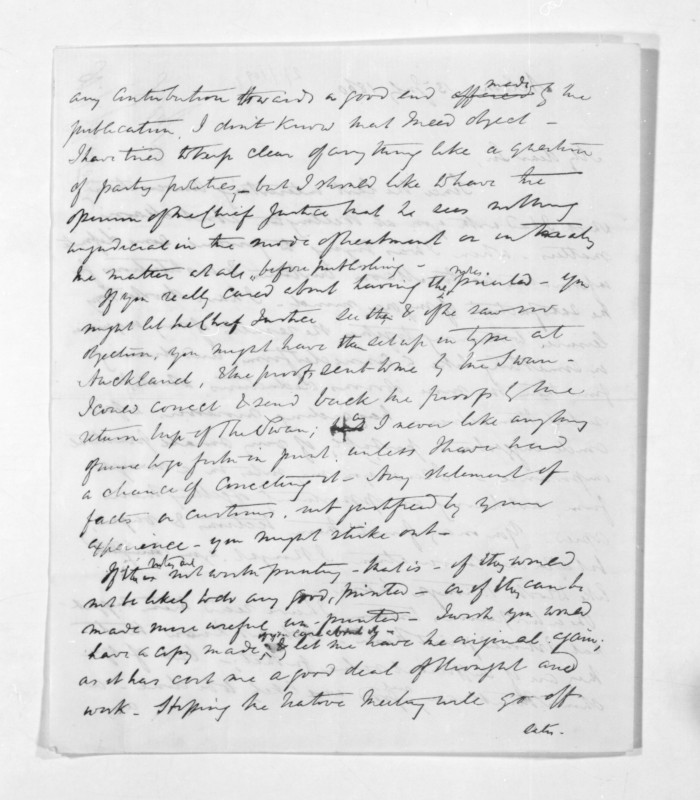 any contribution towards a good end offered made by the
publication, I don't know that I need object -
I have tried to keep clear of anything like a question
of party politics, - but I should like to have the
opinion of the Chief Justice that he sees nothing
unjudicial in the mode of treatment or in treating
the matter at all, before publishing -
If you really cared about having the notes printed - you
might let the Chief Justice see them & if he saw no
objection, you might have them set up in type at
Auckland, & the proofs sent to me by the Swan -
I could correct & send back the proofs by the
return trip of The Swan; as I never like anything
of mine to go forth in print, unless I have had
a chance of correcting it - Any statement of
facts or customs, not justified by your
experience - you might strike out -
If the notes are not worth printing - that is - if they would
not be likely to do any good, printed - or if they can be
made more useful un-printed - I wish you would
have a copy made, if you care about it, & let me have the original again;
as it has cost me a good deal of thought and
work - Hoping the Native Meeting will go off